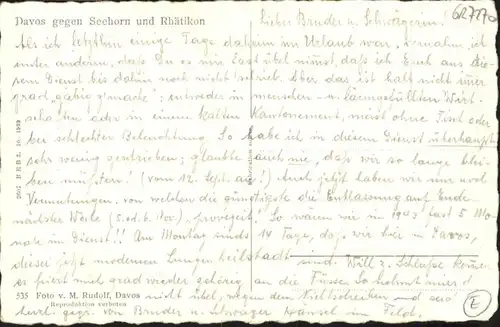 Davos gegen Seehorn und Rhätikon
62777
Lieber Bruder u. Schwägerin!
Als ich letzthin einige Tage daheim im Urlaub war, vernahm ich
unter anderm, dass Du es mir fast übel nimst, dass ich Euch aus die-
sem Dienst bis dahin noch nicht schrieb. Aber das ist halt nicht imer
grad "gäbig z'mache": entweder in menschen- u. lärmgefüllten Wirt-
schaften oder in einem kalten Kantonement, meist ohne Tisch oder
bei schlechter Beleuchtung. So habe ich in diesem Dienst überhaupt
sehr wenig geschrieben; glaubte auch nie, dass wir so lange blei-
ben müssten! (vom 12. Sept. an!) Auch jetzt haben wir nur
Vermutungen, von welchen die günstigste die Entlassung auf Ende
nächster Woche (5. od. 6. Nov.) "prophezeit". So wären wir in 1943 fast 5 Mo-
nate im Dienst!! Am Montag sinds 14 Tage, da wir hier in Davos,
dieser jetzt modernen Lungenheilstadt sind. Will z. Schluss kome,
es friert mich grad wieder gehörig an die Füsse. So nehmt mir's
nicht übel, wegen dem Nichtschreiben und seid
herzl. gegr. von Bruder u. Schwager Hansel im Feld.
2502 BRB 3. 10. 1939
535 Foto v. M. Rudolf, Davos
Reproduktion verboten
E